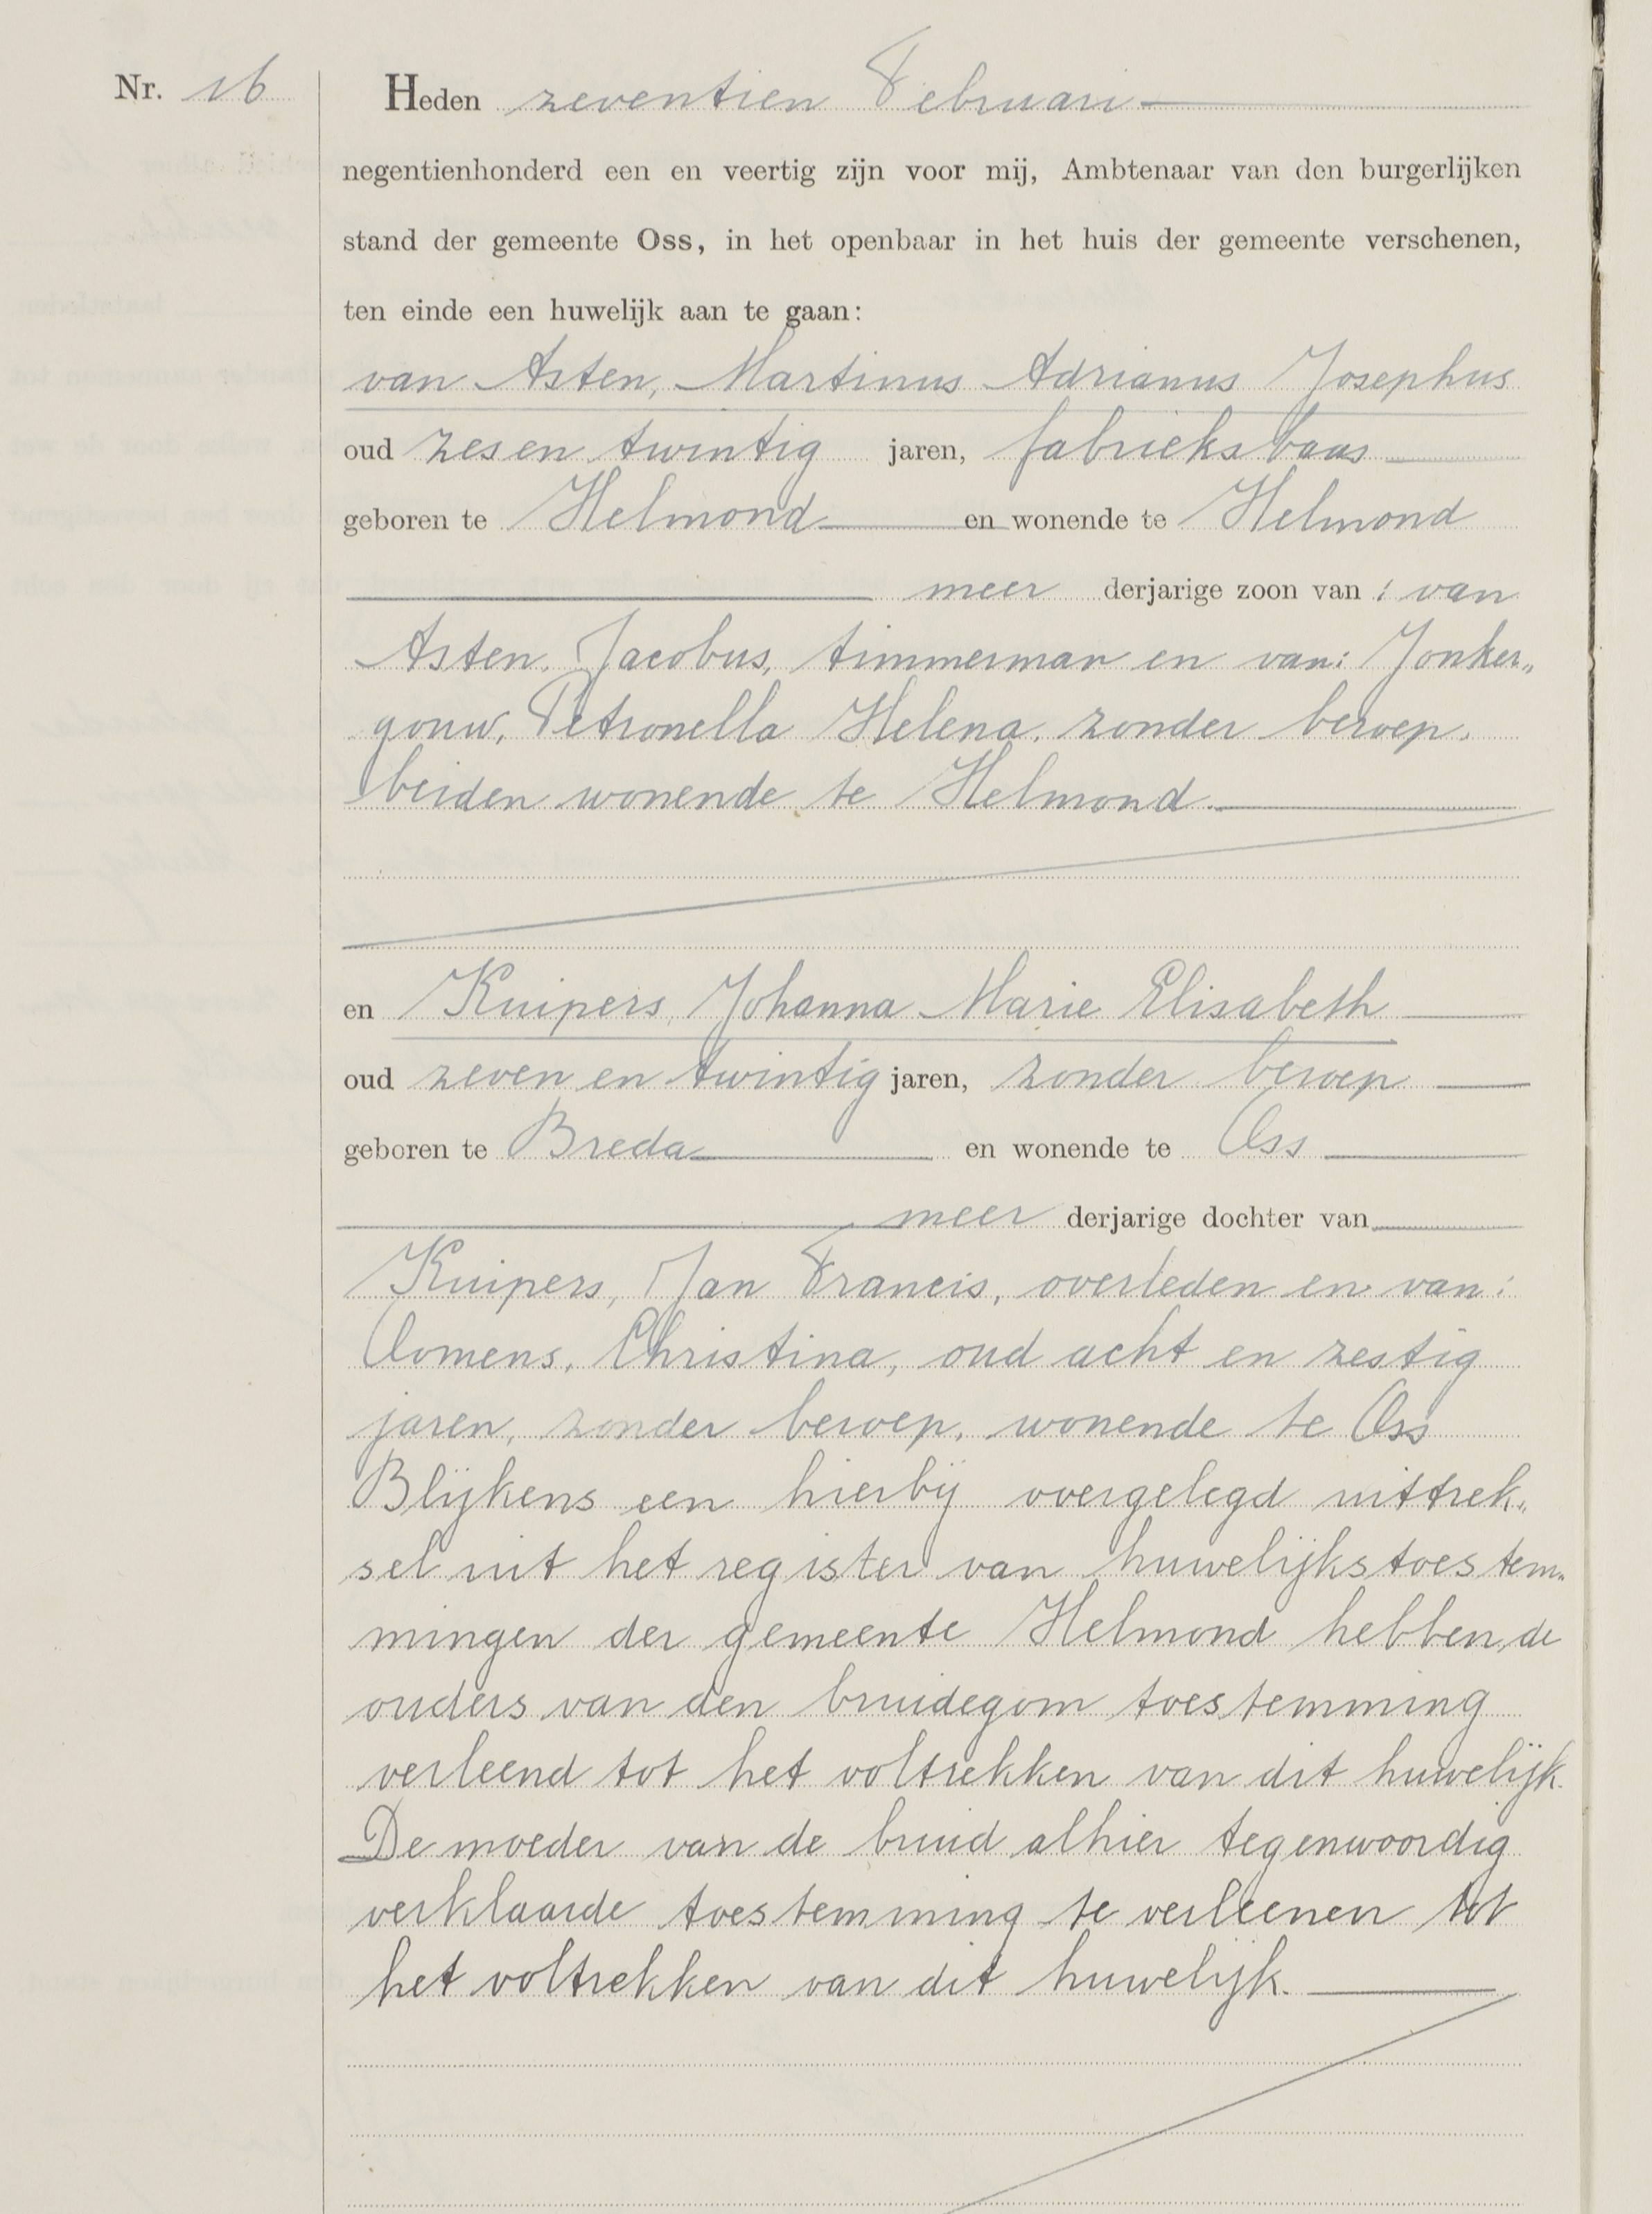 Nr. 16
Heden zeventien Februari
negentienhonderd een en veertig zijn voor mij, Ambtenaar van den burgerlijken
stand der gemeente Oss, in het openbaar in het huis der gemeente verschenen,
ten einde een huwelijk aan te gaan:
van Asten, Martinus Adrianus Josephus
oud zes en twintig jaren, fabrieksbaas
geboren te Helmond en wonende te Helmond
meer derjarige zoon van : van
Asten, Jacobus, timmerman en van: Jonker„
gouw, Petronella Helena, zonder beroep,
beiden wonende te Helmond.
en Kuipers, Johanna Marie Elisabeth
oud zeven en twintig jaren, zonder beroep
geboren te Breda en wonende te Oss
meer derjarige dochter van
Kuipers, Jan Francis, overleden en van:
Oomens, Christina, oud acht en zestig
jaren, zonder beroep, wonende te Oss
Blijkens een hierbij overgelegd uittrek„
sel uit het register van huwelijkstoestem„
mingen der gemeente Helmond hebben de
ouders van den bruidegom toestemming
verleend tot het voltrekken van dit huwelijk.
De moeder van de bruid alhier tegenwoordig
verklaarde toestemming te verleenen tot
het voltrekken van dit huwelijk.